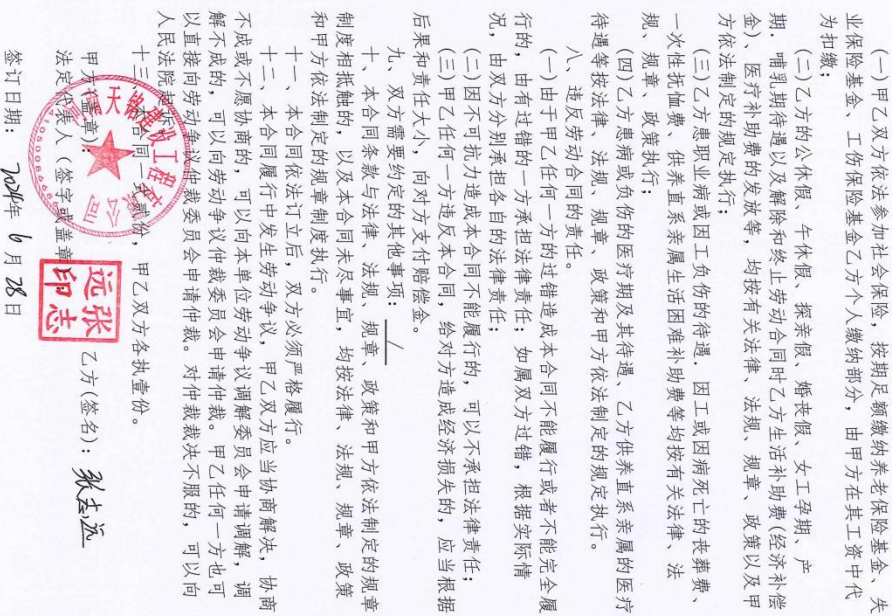 (一)甲乙双方依法参加社会保险，按期足额缴纳养老保险基金、失
业保险基金、工伤保险基金乙方个人缴纳部分，由甲方在其工资中代
为扣缴；
(二)乙方的公休假、午休假、探亲假、婚丧假、女工孕期、产
期、哺乳期待遇以及解除和终止劳动合同时乙方生活补助费(经济补偿
金)、医疗补助费的发放等，均按有关法律、法规、规章、政策以及甲
方依法制定的规定执行；
(三)乙方患职业病或因工负伤的待遇，因工或因病死亡的丧葬费、
一次性抚恤费、供养直系亲属生活困难补助费等均按有关法律、法
规、规章、政策执行；
(四)乙方患病或负伤的医疗期及其待遇、乙方供养直系亲属的医疗
待遇等按法律、法规、规章、政策和甲方依法制定的规定执行。
八、违反劳动合同的责任。
(一)由于甲乙任何一方的过错造成本合同不能履行或者不能完全履
行的，由有过错的一方承担法律责任；如属双方过错，根据实际情
况，由双方分别承担各自的法律责任；
(二)因不可抗力造成本合同不能履行的，可以不承担法律责任；
(三)甲乙任何一方违反本合同，给对方造成经济损失的，应当根据
后果和责任大小，向对方支付赔偿金。
九、双方需要约定的其他事项：/
十、本合同条款与法律、法规、规章、政策和甲方依法制定的规章
制度相抵触的，以及本合同未尽事宜，均按法律、法规、规章、政策
和甲方依法制定的规章制度执行。
十一、本合同依法订立后，双方必须严格履行。
十二、本合同履行中发生劳动争议，甲乙双方应当协商解决，协商
不成或不愿协商的，可以向本单位劳动争议调解委员会申请调解，调
解不成的，可以向劳动争议仲裁委员会申请仲裁。甲乙任何一方也可
以直接向劳动争议仲裁委员会申请仲裁。对仲裁裁决不服的，可以向
人民法院
十三 合同一式 份，甲乙双方各执壹份。
甲方(盖章) 乙方(签名)：张志远
法定代表人(签字或盖章)
张志远印
签订日期：2024年6月28日